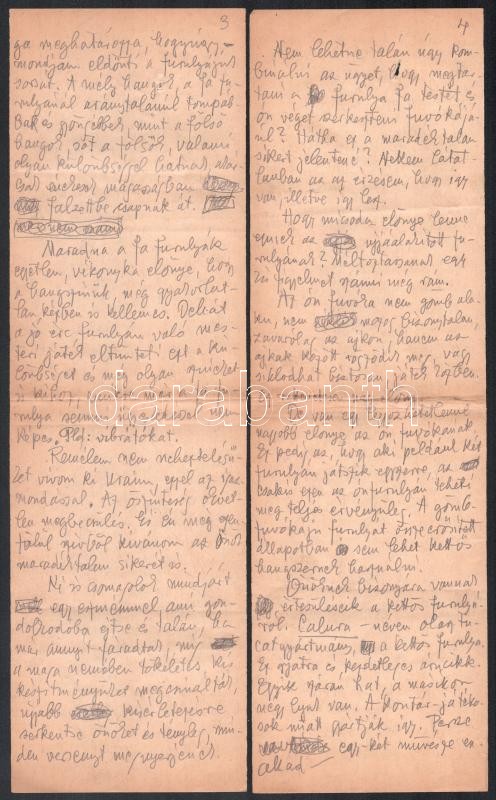 3
ga meghatározza, hogy úgy,-
mondjam eldönti a furulyázás
sorsát. A mély hangok, a fa fu-
rulyánál aránytalanul tompáb-
bak és gyöngébbek, mint a felső
hangok, sőt a felsők, valami
olyan különbséggel hatnak
magasságban
falzettbe csapnak át.
Maradna a fa furulyák
egyetlen, vékonyka előnye, hogy
a hangszínük, még gyakorlat-
lan kézben is kellemes. De hát
a jó érc furulyán való mes-
teri játék eltünteti ezt a kü-
lönbséget és még olyan
is kihoz, amire más fu-
rulya semmi
képes, Pld: vibrátókat.
Remélem nem neheztelésü-
ket vívom ki Uraim, ezzel az igaz
mondással. Az őszinteség
len megbecsülés. És én még
szívből kívánom az önök
maradéktalan sikerét is.
Ki is csomagolok mindjárt
egy eszmémmel, ami gon-
dolkodóba ejtse és talán, ha
már annyit fáradtak, míg
a maga nemében tökéletes kis
készítményüket megcsinálták,
újabb kísérletezésre
serkentse önöket és tényleg, min-
den versenyt megnyerjenek.
darabanth
4
Nem lehetne talán úgy kom-
binálni az ügyet, hogy megtar-
tani a furulya fa testét és
ön véget szerkeszteni fuvókájá-
ul? Hátha ez a maradéktalan
sikert jelentené? Nekem látat-
lanban az az érzésem, hogy így
van, illetve így lesz.
Hogy micsoda előnye lenne
ennek az újjáalakított fu-
rulyának? Méltóztassanak egy
kis figyelmet szánni még rám.
Az ón fuvóka nem gomb ala-
kú, nem mozog bizonytalan,
zavarólag az ajkon, hanem az
ajkak között rögződik meg, vagy
siklódhat biztosan játék közben.
van egy legszédületesebb
nagyobb előnye az ón fuvókának.
Ez pedig az, hogy aki például két
furulyán játszik egyszerre, az
csakis ezen az ónfurulyán teheti
meg teljes érvényűleg. A gomb-
fuvókájú furulyát összeerősített
állapotban sem lehet kettős
hangszernek használni.
Önöknek bizonyára vannak
értesüléseik a kettős furulyá-
ról. Calura - néven olasz
gyártmány, a kettős furulya.
Ez
Egyik szárán hat, a másikon
négy lyuk van. A kontár-játéko-
sok miatt gyártják így. Persze
egy-két művésze is
akad